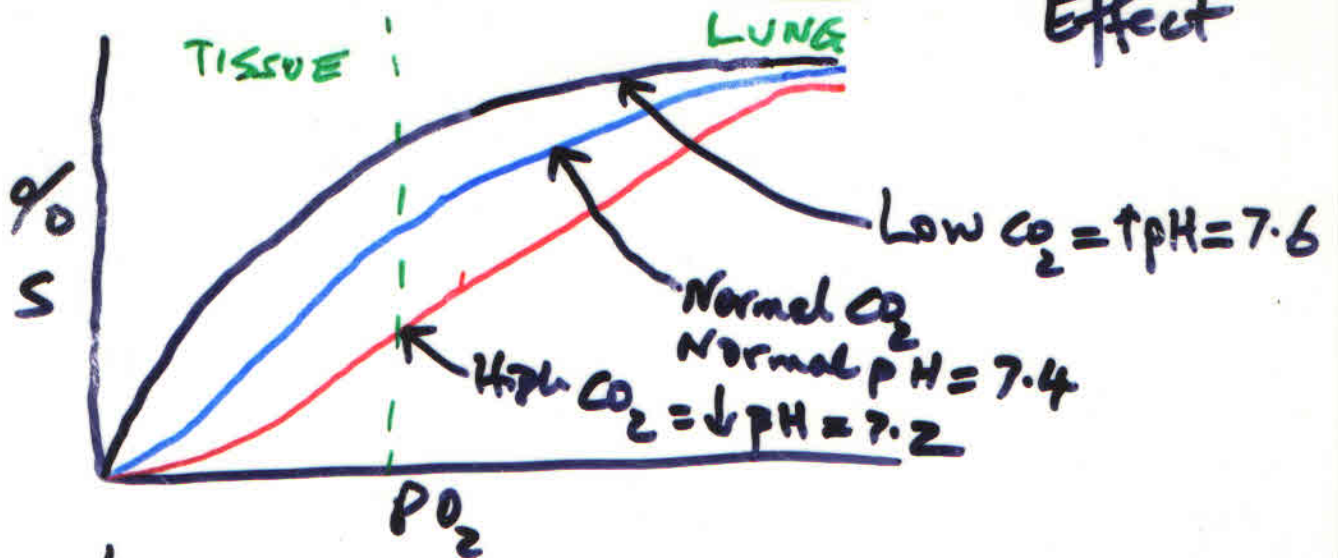 Effect
TISSUE
LUNG
%
S
Low CO₂ = ↑pH = 7.6
Normal CO₂
Normal pH = 7.4
High CO₂ = ↓pH = 7.2
PO₂